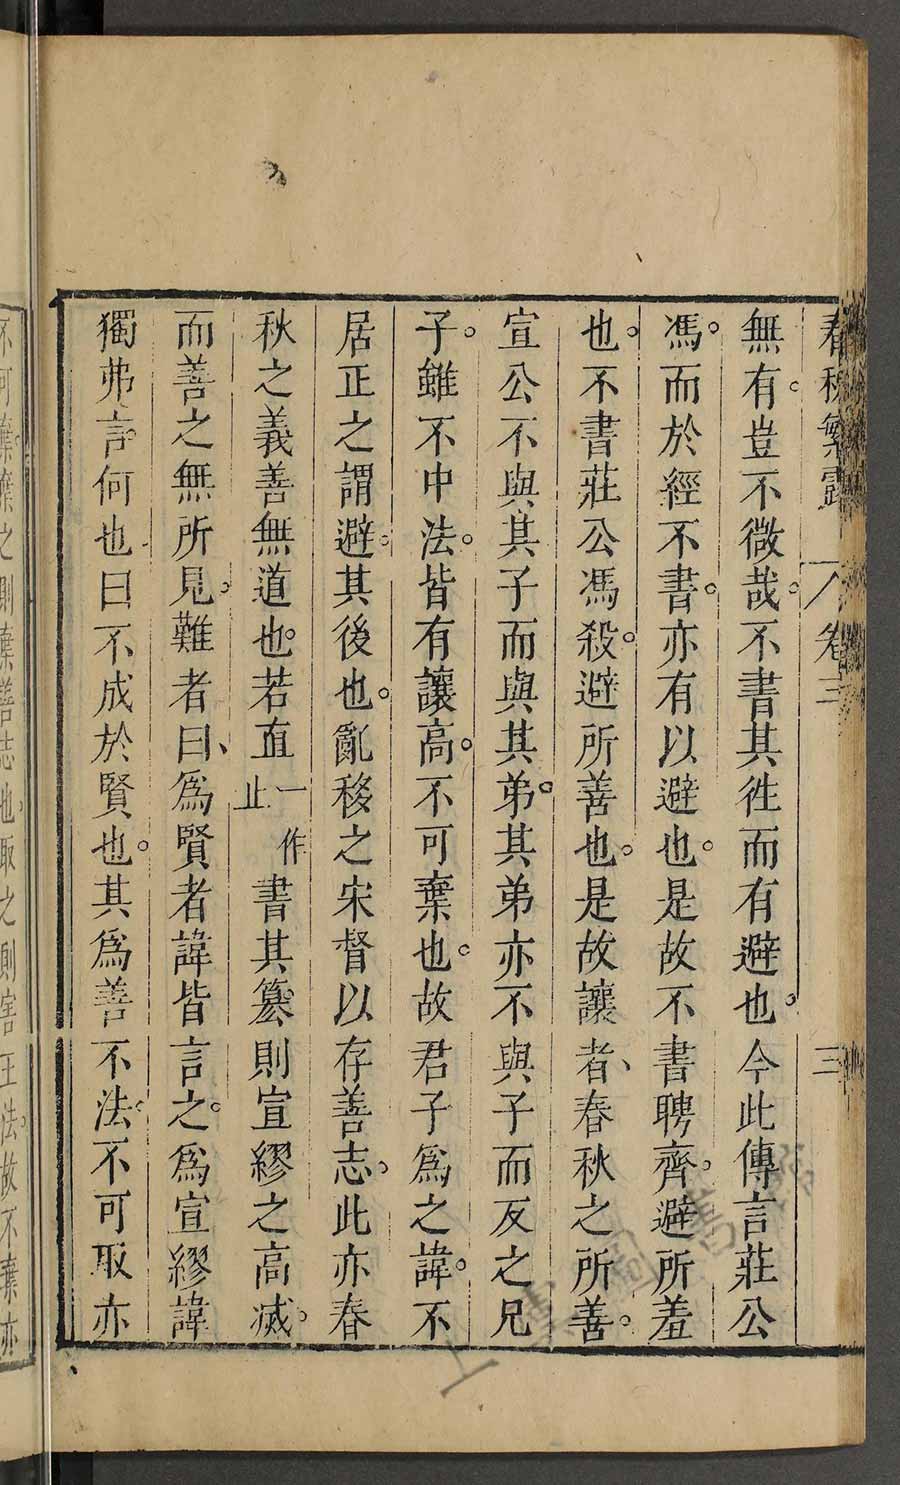 春秋繁露 卷三 三
無有。豈不微哉。不書其徃而有避也。今此傳言莊公
馮。而於經不書。亦有以避也。是故不書聘齊。避所羞
也。不書莊公馮殺。避所善也。是故讓者、春秋之所善。
宣公不與其子而與其弟。其弟亦不與子而反之兄
子。雖不中法。皆有讓高。不可棄也。故君子爲之諱。不
居正之謂避。其後也。亂移之宋督以存善志。此亦春
秋之義善無道也。若直一作止書其簒。則宣繆之高滅。
而善之無所見。難者曰、爲賢者諱皆言之。爲宣繆諱
獨弗言。何也曰不成於賢也。其爲善不法。不可取亦
不可棄。棄之則棄善志也。取之則害王法。故不棄亦